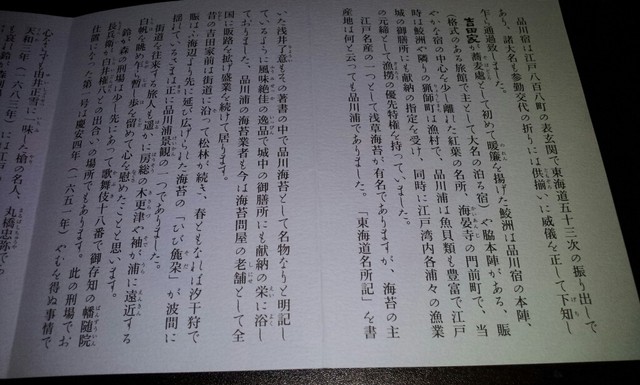 品川宿は江戸八百八町の表玄関で東海道五十三次の振り出しで
あり、諸大名も参勤交代の折りには供揃いに威儀を正して下知し
乍ら通過致しました。
吉田家が蕎麦處として初めて暖簾を揚げた鮫洲は品川宿の本陣、
(格式のある旅館で主として大名の泊る宿)や脇本陣がある、賑
やかな宿の中心を少し離れた紅葉の名所、海晏寺の門前町で、当
時は鮫洲や隣りの猟師町は漁村で、品川浦は魚貝類も豊富で江戸
城の御膳所にも献納の指定を受け、同時に江戸湾内各浦々の漁業
の元締として漁撈の優先特権を持っていました。
江戸名産の一つとして浅草海苔が有名でありますが、海苔の主
産地は何と云っても品川浦でありました。「東海道名所記」を書
いた浅井了意もその著書の中で品川海苔として名物なりと明記し
ているように風味絶佳の逸品で城中の御膳所にも献納の栄に浴し
ました。品川浦の海苔業者も今は海苔問屋の老舗として全
国に販路を拡げ盛業を続けて居ります。
昔の吉田家前は街道に沿って松林が続き、春ともなれば汐干狩で
賑ぶ海辺より先に延び広げられた海苔の「ひび施朶」が波間に
揺れているさまは正に品川浦景観の一つでありました。
街道を往来する旅人も遥かに房総の木更津や袖が浦に遠近する
白帆を眺めながら暫し歩を留めて心を慰めたことと思います。
鈴が森の刑場は少し先にあって歌舞伎十八番で御存知の幡随院
長兵衛が白井権八との出合いの場所でもあります。此の刑場でお
仕置になった第一号は慶安四年(一六五一年)やむを得ぬ事情で
心ならずも由井正雪に一味した槍の名人、丸橋忠弥で
天和三年(一六八三年)には江戸